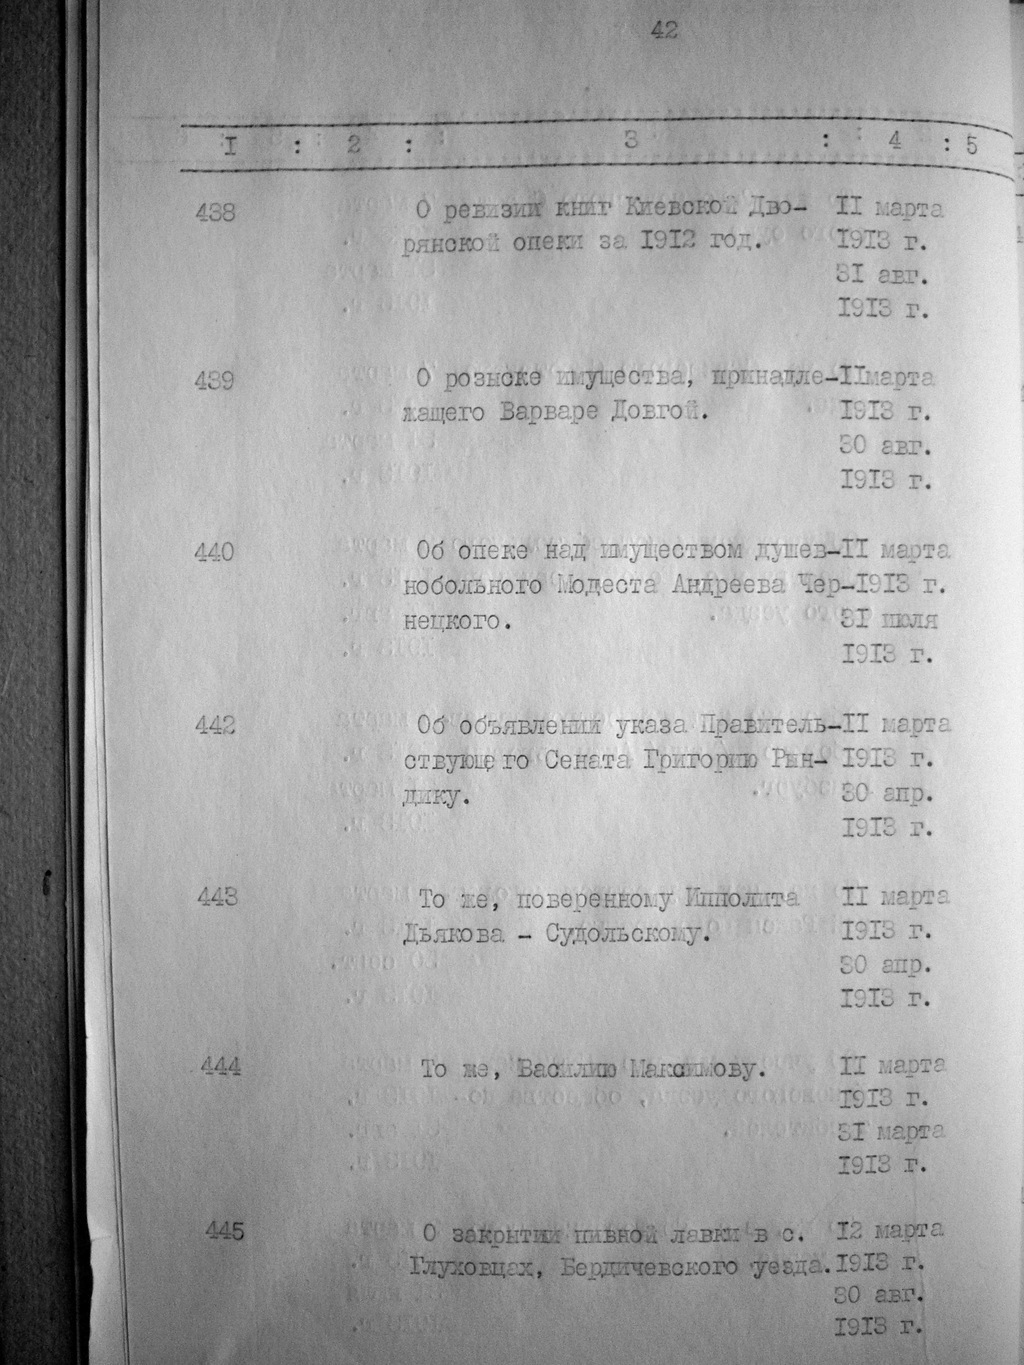 42
I : 2 : 3 : 4 : 5
438 О ревизии книг Киевской Дво- II марта
рянской опеки за 1912 год. 1913 г.
31 авг.
1913 г.
439 О розыске имущества, принадле- II марта
жащего Варваре Довгой. 1913 г.
30 авг.
1913 г.
440 Об опеке над имуществом душев- II марта
нобольного Модеста Андреева Чер- 1913 г.
нецкого. 31 июля
1913 г.
442 Об объявлении указа Правитель- II марта
ствующего Сената Григорию Рын- 1913 г.
дику. 30 апр.
1913 г.
443 То же, поверенному Ипполита II марта
Дьякова - Судольскому. 1913 г.
30 апр.
1913 г.
444 То же, Василию Максимову. II марта
1913 г.
31 марта
1913 г.
445 О закрытии пивной лавки в с. 12 марта
Глуховцах, Бердичевского уезда. 1913 г.
30 авг.
1913 г.